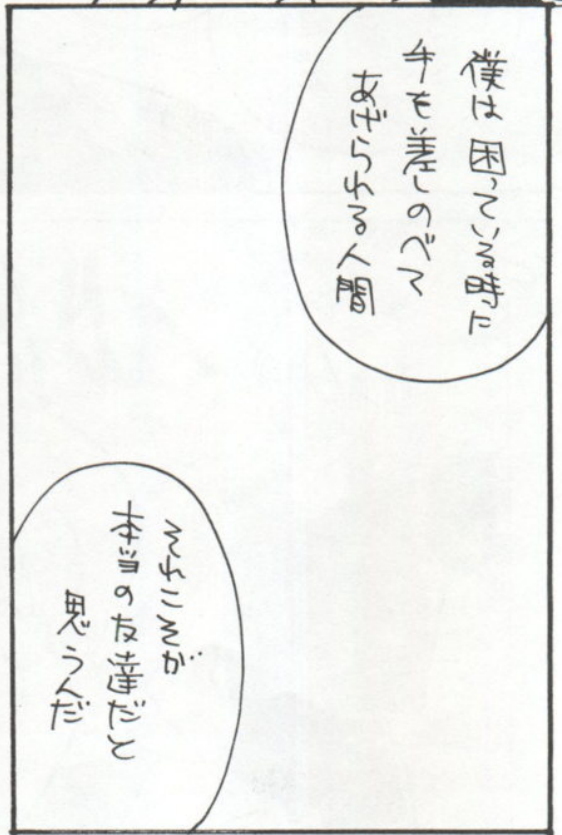 僕は 困っている時に
手を差しのべて
あげられる人間
それこそが
本当の友達だと
思うんだ